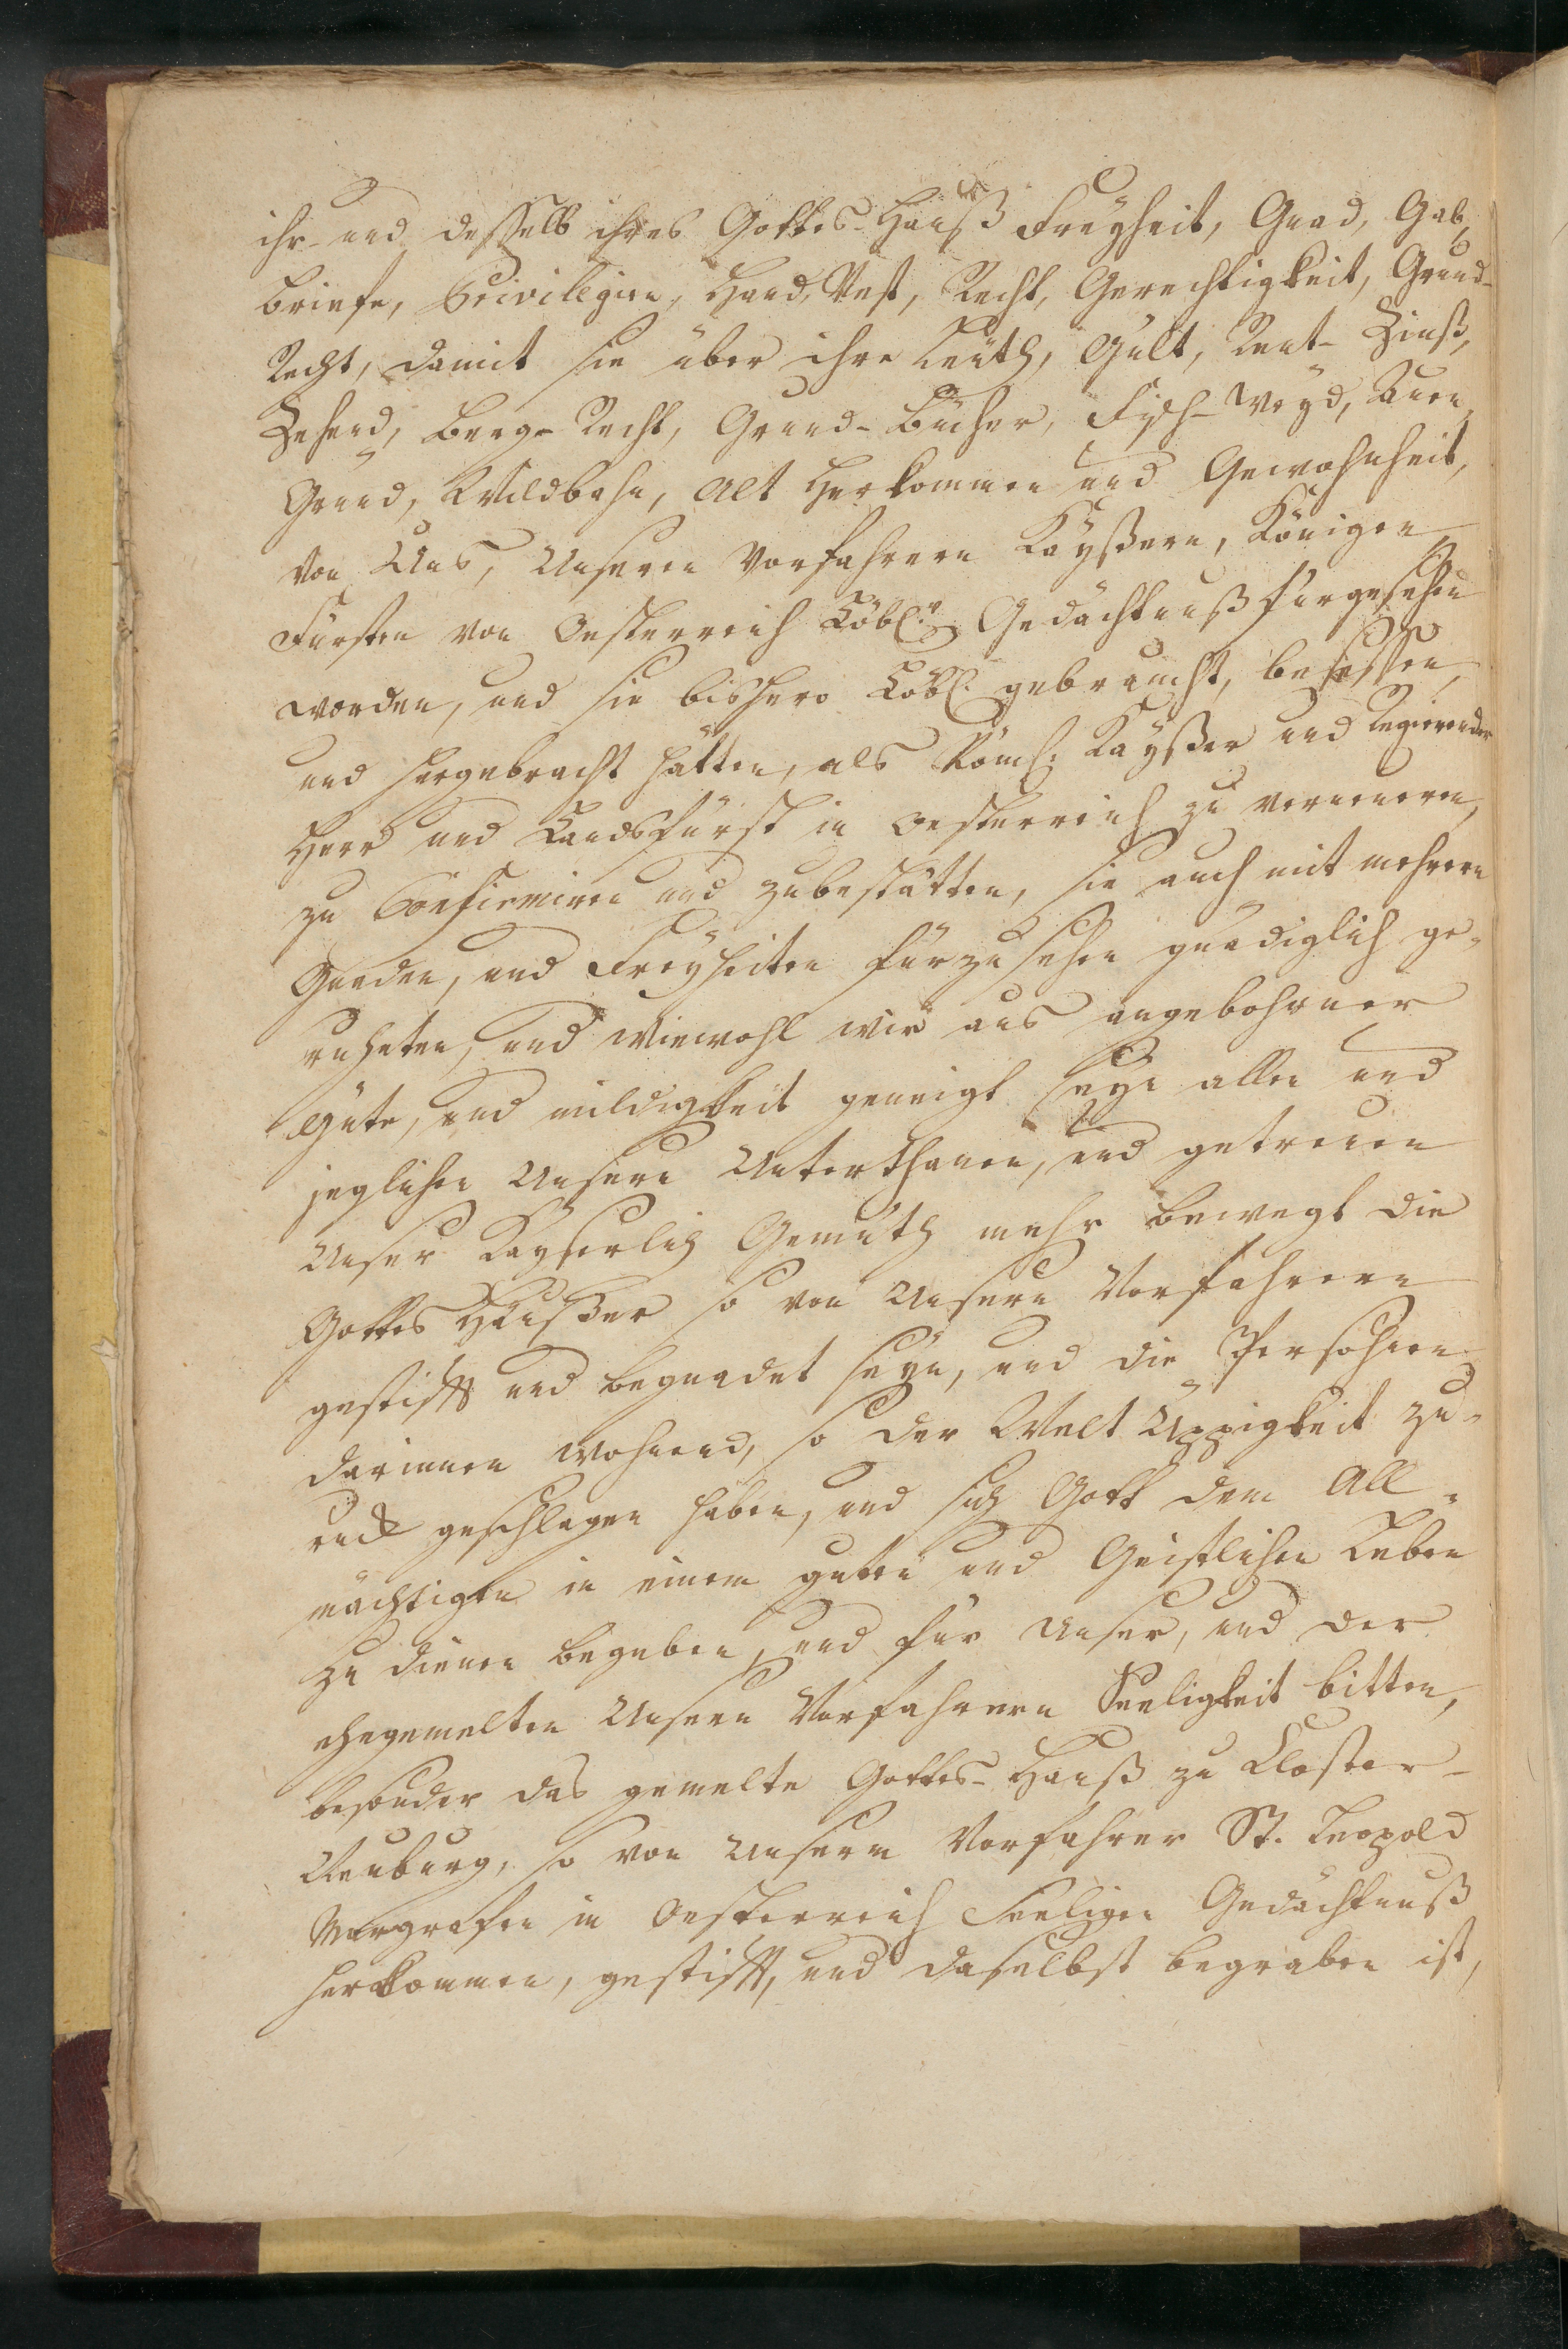 ihr- und desselb ihres Gottes-Hauß Freyheit, Gnad, Gab,
Briefe, Privilegien, Hand, Vest, Recht, Gerechtigkeit, Grund-
Recht, damit sie über ihre Leüth, Gült, Rent- Zinß,
Zehend, Berg-Recht, Grund-Bücher, Fisch-Weyd, Auen,
Gründ, Wildbahn, Alt Herkommen und Gewohnheit,
von Uns, Unseren Vorfahrern Kayßern, Königen,
Fürsten von Oesterreich Löbl. Gedächtnuß fürgesehen
worden, und sie bishero Löbl. gebraucht, besessen,
und hergebracht hätten, als Röml. Kayßer und Regierender
Herr und Landsfürst in Oesterreich zu verneueren,
zu Confirmiren und zubestätten, sie auch mit mehrern
Gnaden, und Freyheiten fürzusehen gnädiglich ge-
ruheten, und wiewohl wir aus angebohrner
Güte, und mildigkeit geneigt seyn allen und
jeglichen Unsern Unterthanen, und getreuen
Unser Kayserlich Gemüth mehr bewegt die
Gottes Häußer so von Unsern Vorfahrern
gestifft und begnadet seyn, und die Persohnen
darinnen wohnend, so der Welt Üppigkeit zu-
ruck geschlagen haben, und sich Gott dem All-
mächtigen in einem guten und Geistlichen Leben
zu dienen begeben, und für Unser, und der
ehegemelten Unsern Vorfahrern Seeligkeit bitten,
besonder das gemelte Gottes-Hauß zu Closter-
Neuburg, so von Unserm Vorfahrer St. Leopold
Margrafen in Oesterreich Seeligen Gedächtnuß
herkommen, gestifft, und daselbst begraben ist,